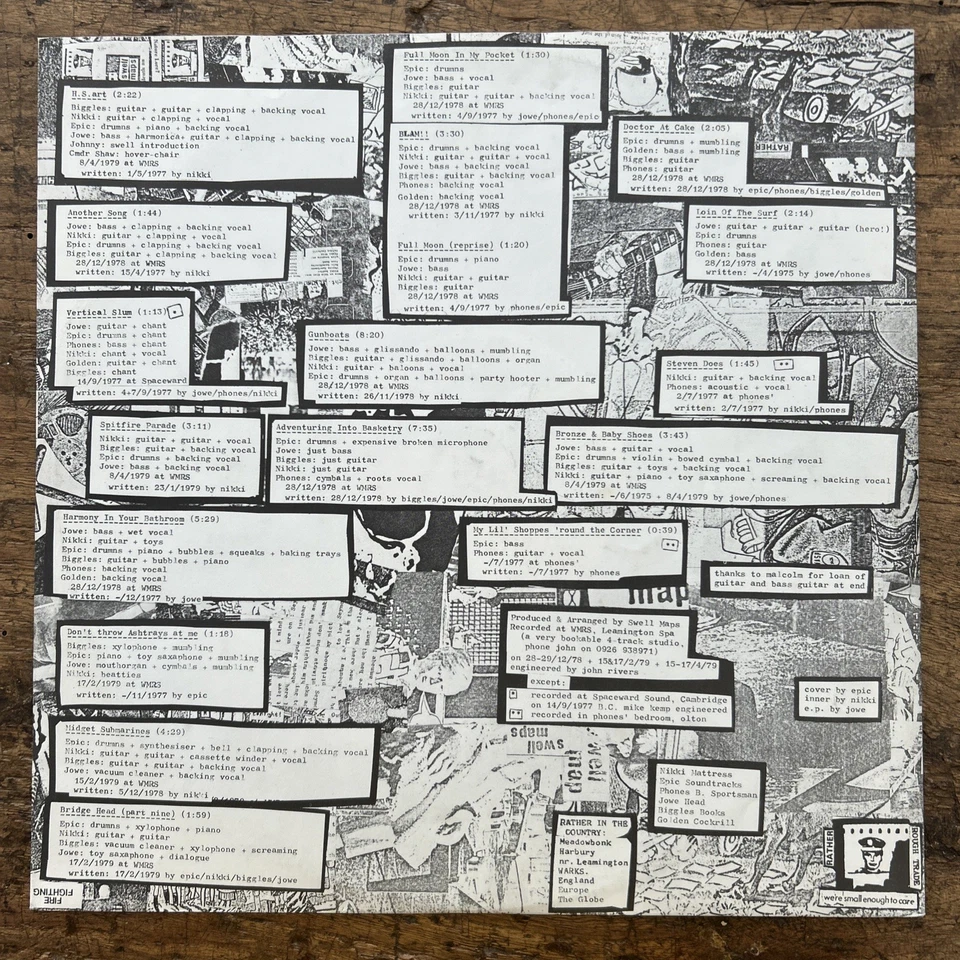 H.S.art (2:22)
Biggles: guitar + guitar + clapping + backing vocal
Nikki: guitar + clapping + vocal
Epic: drumns + piano + backing vocal
Jowe: bass + harmonica+ guitar + clapping + backing vocal
Johnny: swell introduction
Cmdr Shaw: hover-chair
8/4/1979 at WMRS
written: 1/5/1977 by nikki
Another Song (1:44)
Jowe: bass + clapping + backing vocal
Nikki: guitar + clapping + vocal
Epic: drumns + clapping + backing vocal
Biggles: guitar + clapping + backing vocal
28/12/1978 at WMRS
written: 15/4/1977 by nikki
Vertical Slum (1:13)
Jowe: guitar + chant
Epic: drumns + chant
Phones: bass + chant
Nikki: chant + vocal
Golden: guitar + chant
Biggles: chant
14/9/1977 at Spaceward
written: 4+7/9/1977 by jowe/phones/nikki
Spitfire Parade (3:11)
Nikki: guitar + guitar + vocal
Biggles: guitar + backing vocal
Epic: drumns + backing vocal
Jowe: bass + backing vocal
8/4/1979 at WMRS
written: 23/1/1979 by nikki
Harmony In Your Bathroom (5:29)
Jowe: bass + wet vocal
Nikki: guitar + toys
Epic: drumns + piano + bubbles + squeaks + baking trays
Biggles: guitar + bubbles + piano
Phones: backing vocal
Golden: backing vocal
28/12/1978 at WMRS
written: -/12/1977 by jowe
Don't throw Ashtrays at me (1:18)
Biggles: xylophone + mumbling
Epic: piano + toy saxaphone + mumbling
Jowe: mouthorgan + cymbals + mumbling
Nikki: beatties
17/2/1979 at WMRS
written: -/11/1977 by epic
Midget Submarines (4:29)
Epic: drumns + synthesiser + bell + clapping + backing vocal
Nikki: guitar + guitar + cassette winder + vocal
Biggles: guitar + guitar + backing vocal
Jowe: vacuum cleaner + backing vocal
15/2/1979 at WMRS
written: 5/12/1978 by nikki
Bridge Head (part nine) (1:59)
Epic: drumns + xylophone + piano
Nikki: guitar + guitar
Biggles: vacuum cleaner + xylophone + screaming
Jowe: toy saxaphone + dialogue
17/2/1979 at WMRS
written: 17/2/1979 by epic/nikki/biggles/jowe
FIRE
FIGHTING
Full Moon In My Pocket (1:30)
Epic: drumns
Jowe: bass + vocal
Biggles: guitar
Nikki: guitar + guitar + backing vocal
28/12/1978 at WMRS
written: 4/9/1977 by jowe/phones/epic
BLAM!! (3:30)
Epic: drumns + backing vocal
Nikki: guitar + guitar + vocal
Jowe: bass + backing vocal
Biggles: guitar + backing vocal
Phones: backing vocal
Golden: backing vocal
28/12/1978 at WMRS
written: 3/11/1977 by nikki
Full Moon (reprise) (1:20)
Epic: drumns + piano
Jowe: bass
Nikki: guitar + guitar
Biggles: guitar
28/12/1978 at WMRS
written: 4/9/1977 by phones/epic
Gunboats (8:20)
Jowe: bass + glissando + balloons + mumbling
Biggles: guitar + glissando + balloons + organ
Nikki: guitar + baloons + vocal
Epic: drumns + organ + balloons + party hooter + mumbling
28/12/1978 at WMRS
written: 26/11/1978 by nikki
Adventuring Into Basketry (7:35)
Epic: drumns + expensive broken microphone
Jowe: just bass
Biggles: just guitar
Nikki: just guitar
Phones: cymbals + roots vocal
28/12/1978 at WMRS
written: 28/12/1978 by biggles/jowe/epic/phones/nikki
Doctor At Cake (2:05)
Epic: drumns + mumbling
Golden: bass + mumbling
Biggles: guitar
28/12/1978 at WMRS
written: 28/12/1978 by epic/phones/biggles/golden
RATHER
Loin Of The Surf (2:14)
Jowe: guitar + guitar + guitar (hero!)
Epic: drumns
Phones: guitar
Golden: bass
28/12/1978 at WMRS
written: -/4/1975 by jowe/phones
Steven Does (1:45)
Nikki: guitar + backing vocal
Phones: acoustic + vocal
2/7/1977 at phones'
written: 2/7/1977 by nikki/phones
Bronze & Baby Shoes (3:43)
Jowe: bass + guitar + vocal
Epic: drumns + violin + bowed cymbal + backing vocal
Biggles: guitar + toys + backing vocal
Nikki: guitar + piano + toy saxaphone + screaming + backing vocal
8/4/1979 at WMRS
written: -/6/1975 + 8/4/1979 by jowe/phones
My Lil' Shoppes 'round the Corner (0:39)
Epic: bass
Phones: guitar + vocal
-/7/1977 at phones'
written: -/7/1977 by phones
thanks to malcolm for loan of
guitar and bass guitar at end
map
Produced & Arranged by Swell Maps
Recorded at WMRS, Leamington Spa
(a very bookable 4-track studio,
phone john on 0926 938971)
on 28-29/12/78 + 15&17/2/79 + 15-17/4/79
engineered by john rivers
except:
recorded at Spaceward Sound, Cambridge
on 14/9/1977 B.C. mike kemp engineered
recorded in phones' bedroom, olton
cover by epic
inner by nikki
e.p. by jowe
swell
maps
Nikki Mattress
Epic Soundtracks
Phones B. Sportsman
Jowe Head
Biggles Books
Golden Cockrill
RATHER IN THE
COUNTRY:
Meadowbonk
Harbury
nr. Leamington
WARKS.
England
Europe
The Globe
RATHER
ROUGH TRADE
we're small enough to care